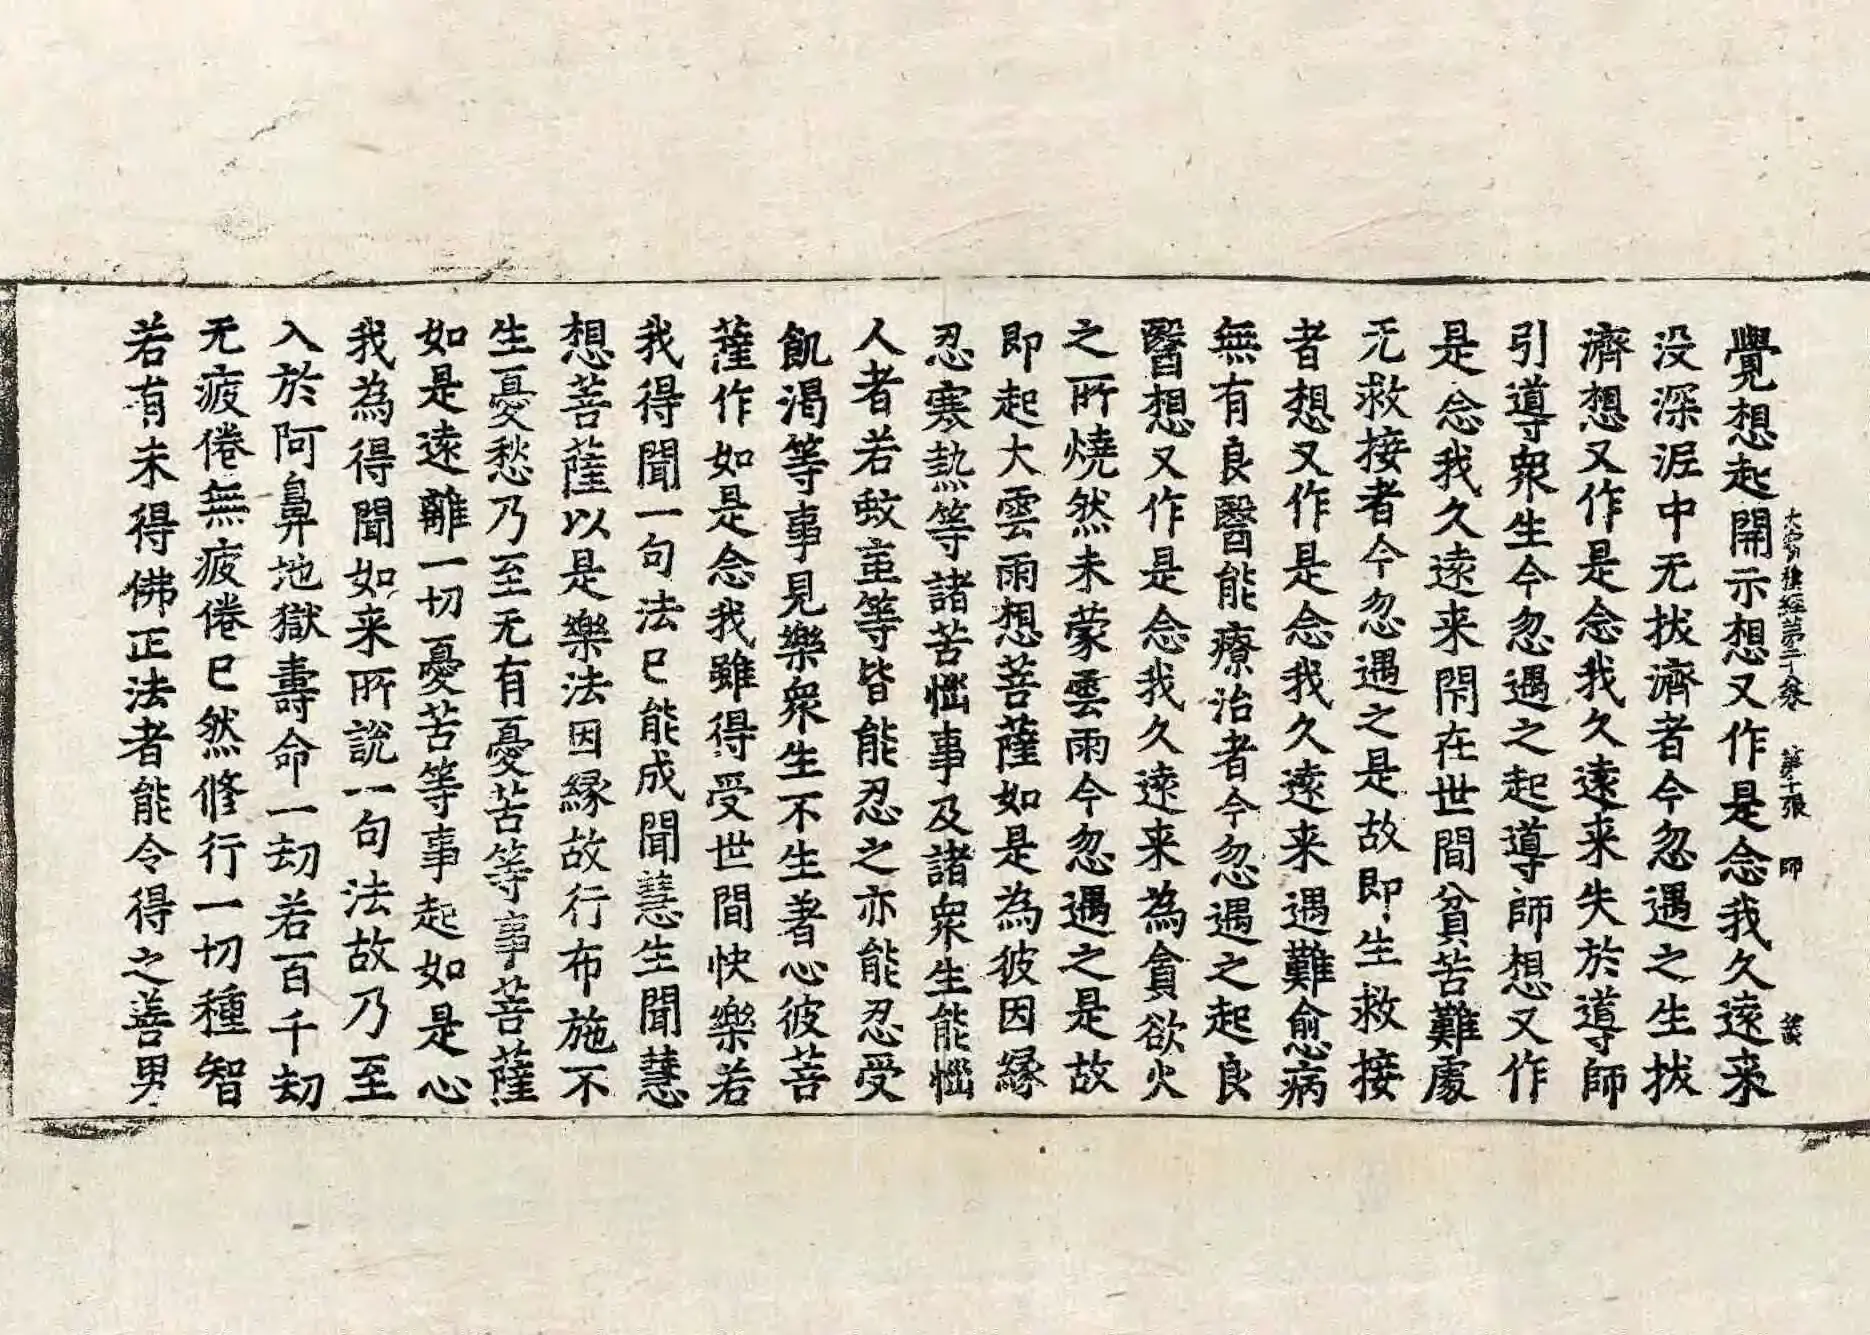 覺想起開示想又作是念我久遠来
大寶積經第三十六卷 第十張 師
没深泥中无拔濟者今忽遇之生拔
濟想又作是念我久遠来失於導師
引導衆生今忽遇之起導師想又作
是念我久遠来閇在世間貧苦難處
无救接者今忽遇之是故即生救接
者想又作是念我久遠来遇難愈病
無有良醫能療治者今忽遇之起良
醫想又作是念我久遠来為貪欲火
之所燒然未蒙雲雨今忽遇之是故
即起大雲雨想菩薩如是為彼因緣
忍寒熱等諸苦惱事及諸衆生能惱
人者若蚊䖝等皆能忍之亦能忍受
飢渴等事見樂衆生不生著心彼菩
薩作如是念我雖得受世間快樂若
我得聞一句法已能成聞慧生聞慧
想菩薩以是樂法因緣故行布施不
生憂愁乃至无有憂苦等事菩薩
如是遠離一切憂苦等事起如是心
我為得聞如来所說一句法故乃至
入於阿鼻地獄壽命一劫若百千劫
无疲倦無疲倦已然修行一切種智
若有未得佛正法者能令得之善男